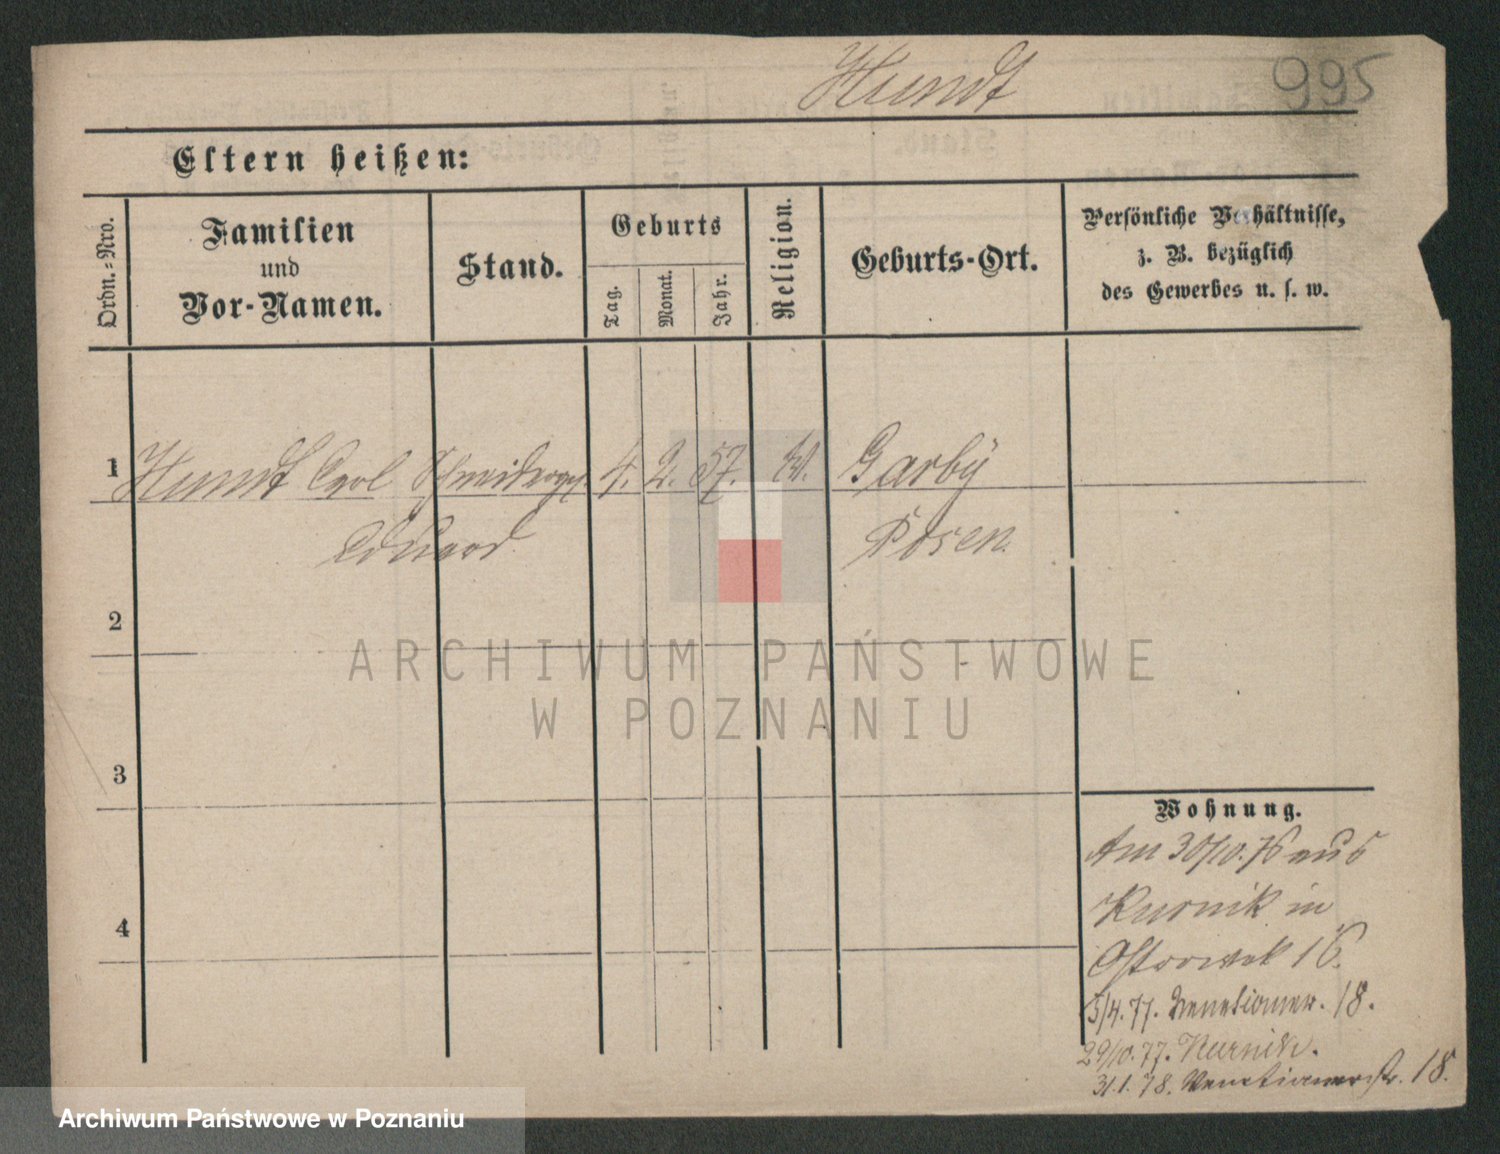 Hundt
995
Eltern heißen:
Ordn.-Nro.
Familien
und
Vor-Namen.
Stand.
Geburts
Tag.
Monat.
Jahr.
Religion.
Geburts-Ort.
Persönliche Verhältnisse,
z. B. bezüglich
des Gewerbes u. s. w.
1 Hundt Carl Schneiderges. 4. 2. 57. Garby
Eduard Posen.
2
3
4
Wohnung.
Am 30/10. 76 aus
Kurnik in
Ostrowek 16.
5/4. 77. Venetianer. 18.
29/10. 77. Kurnik.
31.1.78. Venetianerstr. 18.
ARCHIWUM PAŃSTWOWE
W POZNANIU
Archiwum Państwowe w Poznaniu